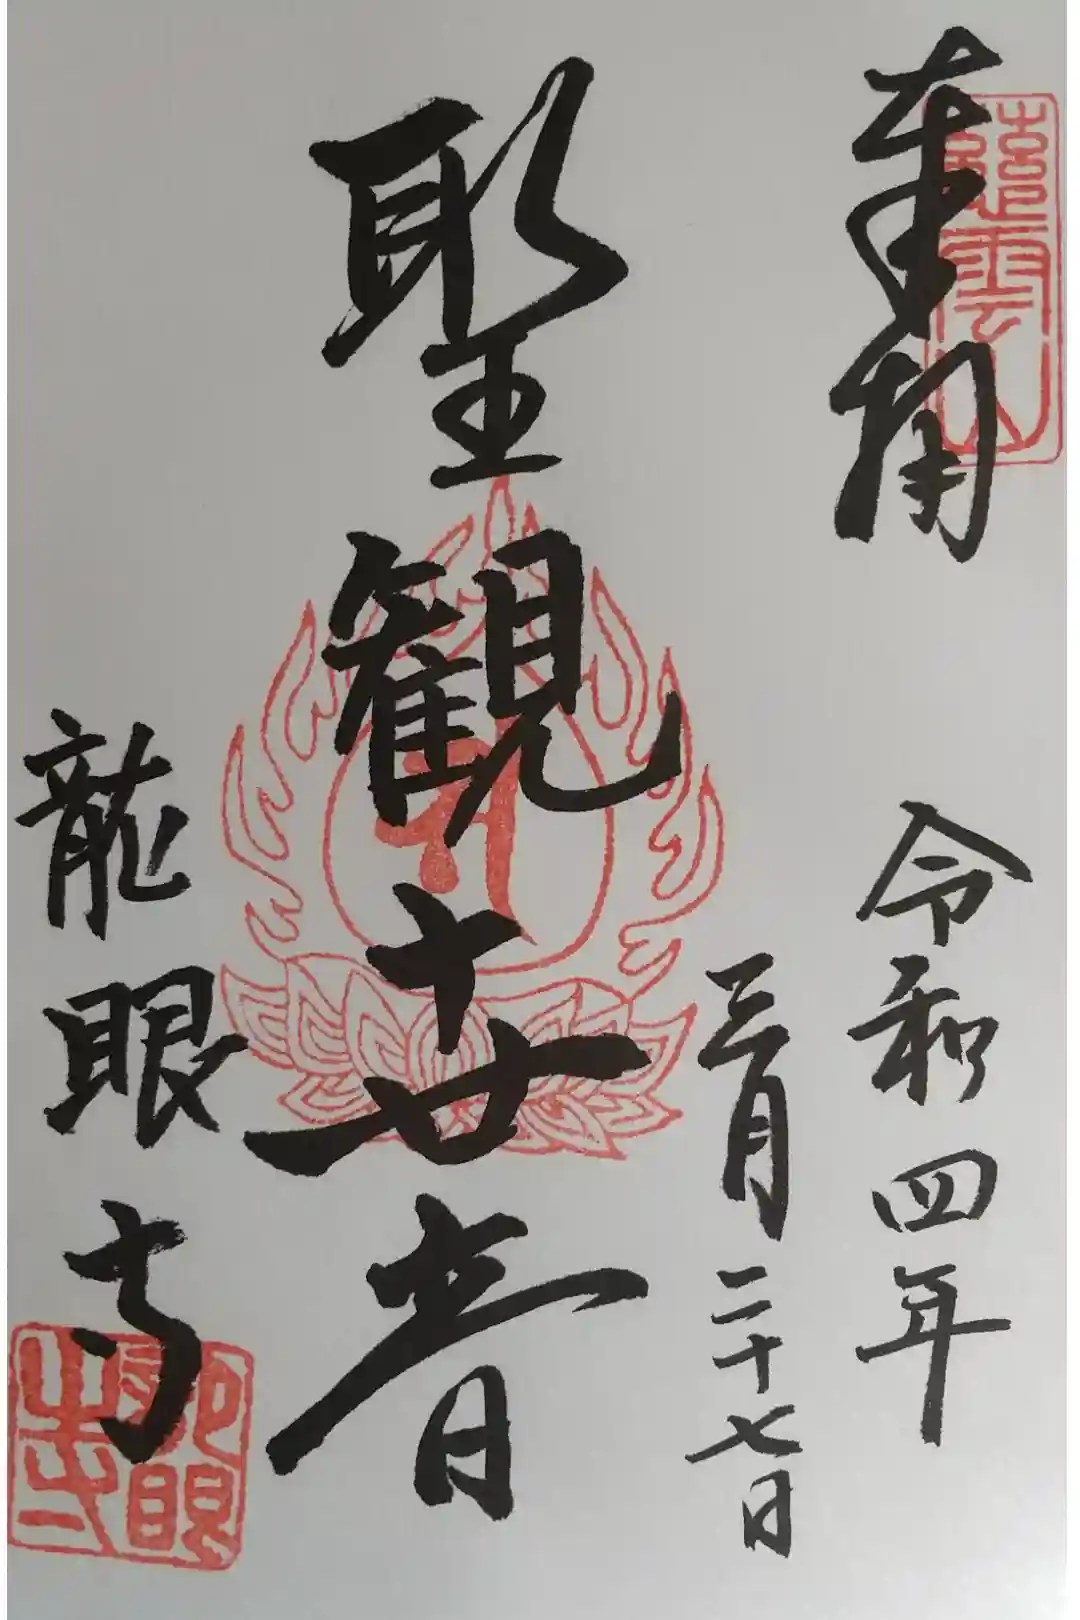 奉拝
令和四年
三月二十七日
聖観世音
龍眼寺